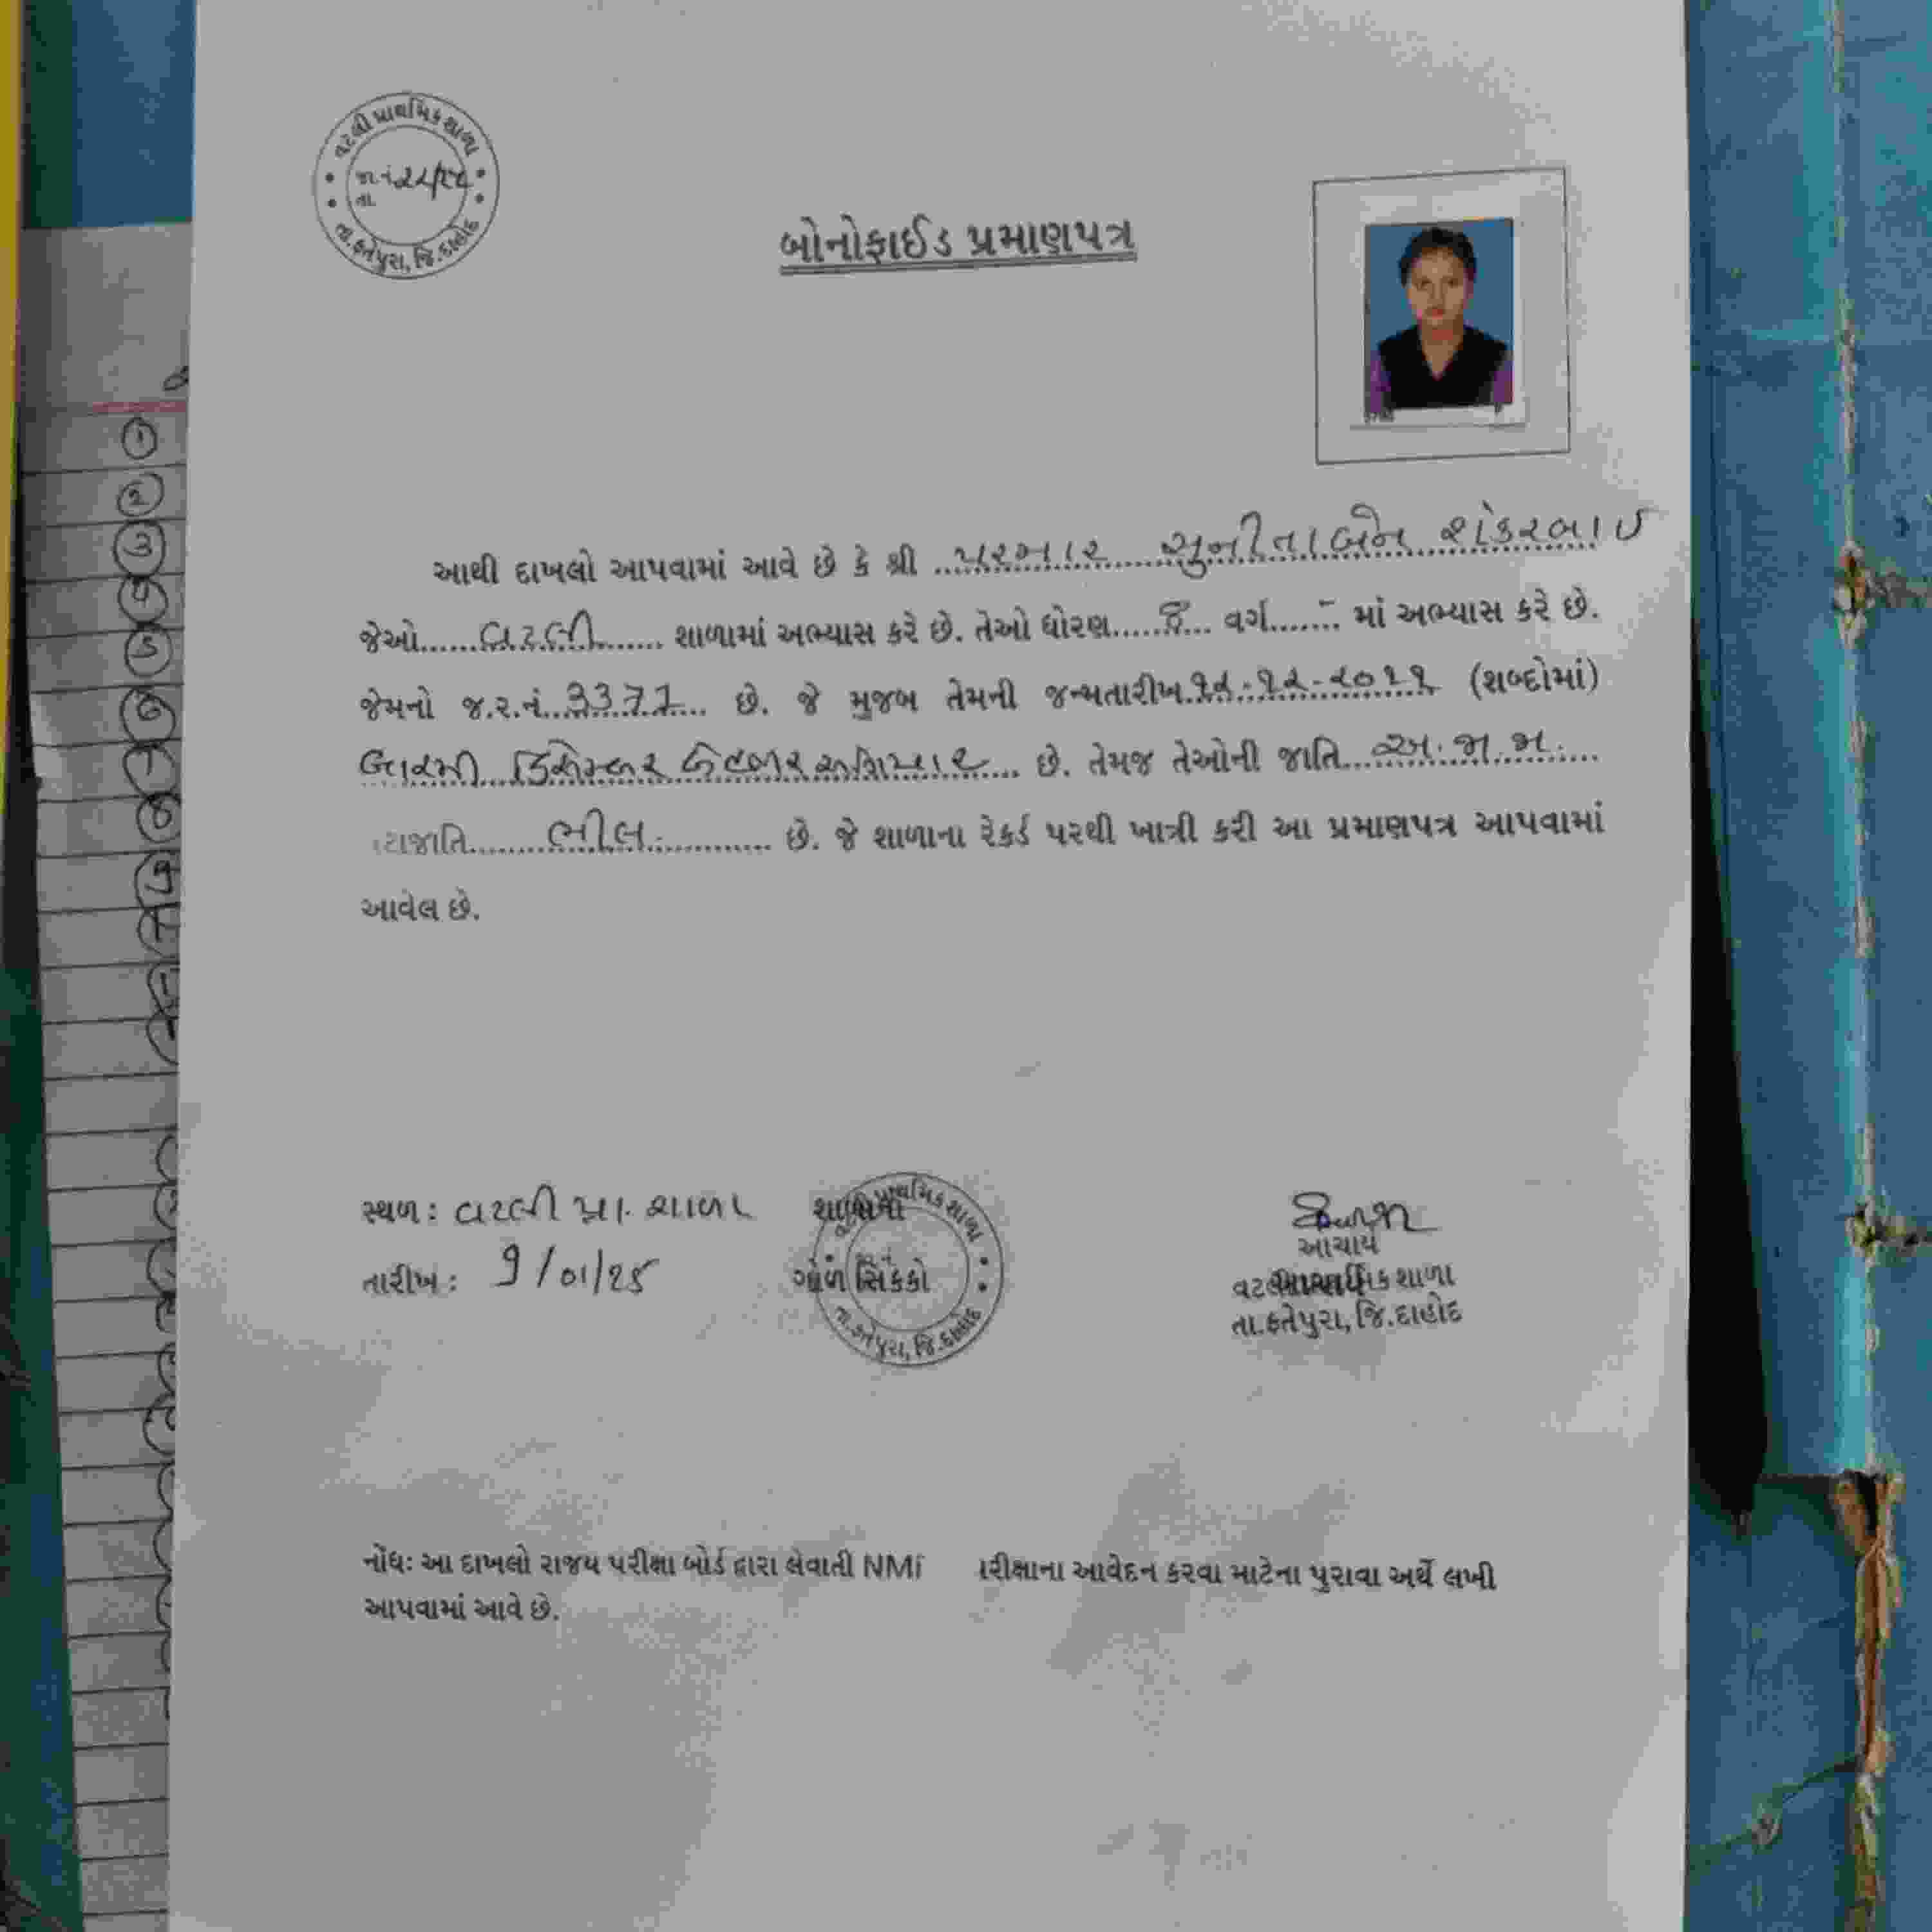 વટલી પ્રાથમિક શાળા
જા.નં
તા.
તા.ફતેપુરા, જિ.દાહોદ
બોનોફાઈડ પ્રમાણપત્ર
આથી દાખલો આપવામાં આવે છે કે શ્રી પરમાર સુનીતાબેન શંકરભાઈ
જેઓ વટલી શાળામાં અભ્યાસ કરે છે. તેઓ ધોરણ ૮ વર્ગ - માં અભ્યાસ કરે છે.
જેમનો જ.ર.નં. 3371 છે. જે મુજબ તેમની જન્મતારીખ ૧૨-૧૨-૨૦૧૧ (શબ્દોમાં)
બારમી ડિસેમ્બર બેહજાર અગિયાર છે. તેમજ તેઓની જાતિ અ.જ.જ.
ભીલ છે. જે શાળાના રેકર્ડ પરથી ખાત્રી કરી આ પ્રમાણપત્ર આપવામાં
આવેલ છે.
સ્થળ : વટલી પ્રા. શાળા
તારીખ : 9/01/25
શાળાનો
ગોળ સિક્કો
તા.ફતેપુરા, જિ.દાહોદ
આચાર્ય
તા.ફતેપુરા, જિ.દાહોદ
નોંધ: આ દાખલો રાજય પરીક્ષા બોર્ડ દ્વારા લેવાતી NM આવેદન કરવા માટેના પુરાવા અર્થે લખી
આપવામાં આવે છે.
①
②
③